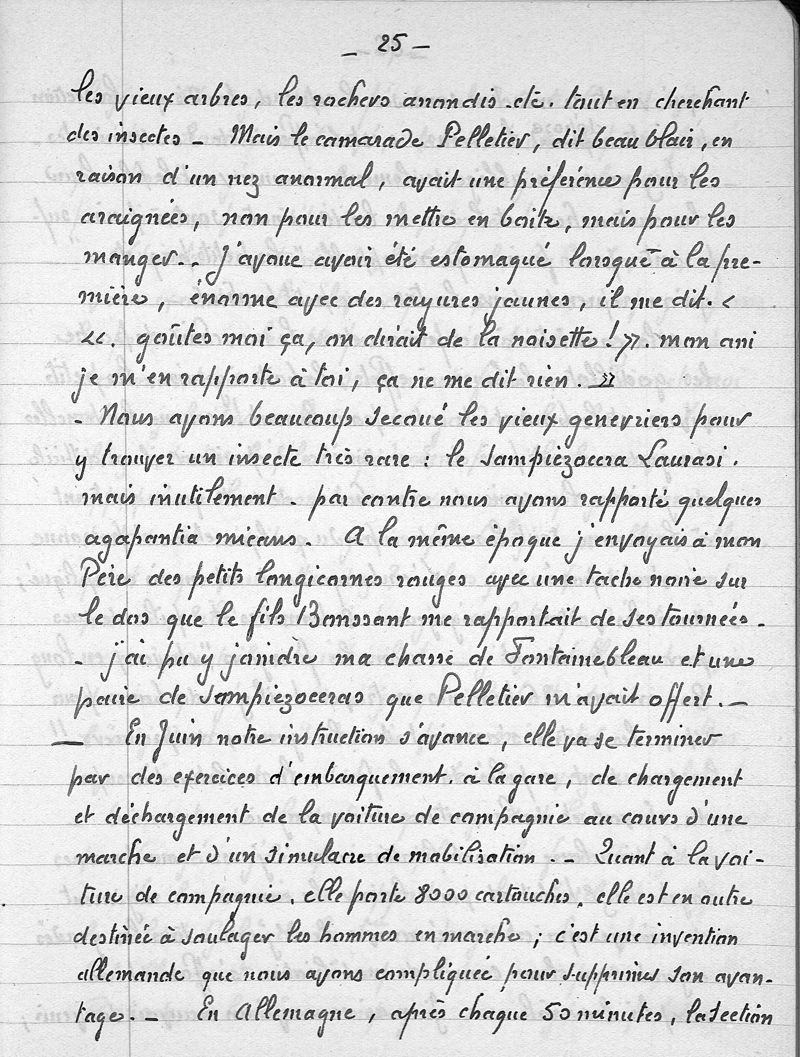 _ 25 _
les vieux arbres, les rochers arrondis etc. tout en cherchant
des insectes _ Mais le camarade Pelletier, dit beau blair, en
raison d'un nez anormal, avait une préférence pour les
araignées, non pour les mettre en boite, mais pour les
manger.. J'avoue avoir été estomaqué lorsque à la pre-
mière, énorme avec des rayures jaunes, il me dit. <
<<. goûtes moi ça, on dirait de la noisette! >>. mon ami
je m'en rapporte à toi, ça ne me dit rien. >>
- Nous avons beaucoup secoué les vieux genevriers pour
y trouver un insecte très rare : le Sampiézocera Laurasi.
mais inutilement. par contre nous avons rapporté quelques
agapantia micans. A la même époque j'envoyais à mon
Père des petits longicornes rouges avec une tache noire sur
le dos que le fils Bonssant me rapportait de ses tournées.
- j'ai pu y joindre ma chasse de Fontainebleau et une
paire de Sampiezoceras que Pelletier m'avait offert. _
_ En Juin notre instruction s'avance, elle va se terminer
par des exercices d'embarquement. à la gare, de chargement
et déchargement de la voiture de compagnie au cours d'une
marche et d'un simulacre de mobilisation. _ Quant à la voi-
ture de compagnie, elle porte 8000 cartouches, elle est en outre
destinée à soulager les hommes en marche ; c'est une invention
allemande que nous avons compliquée pour supprimer son avan-
tage. _ En Allemagne, après chaque 50 minutes, la section